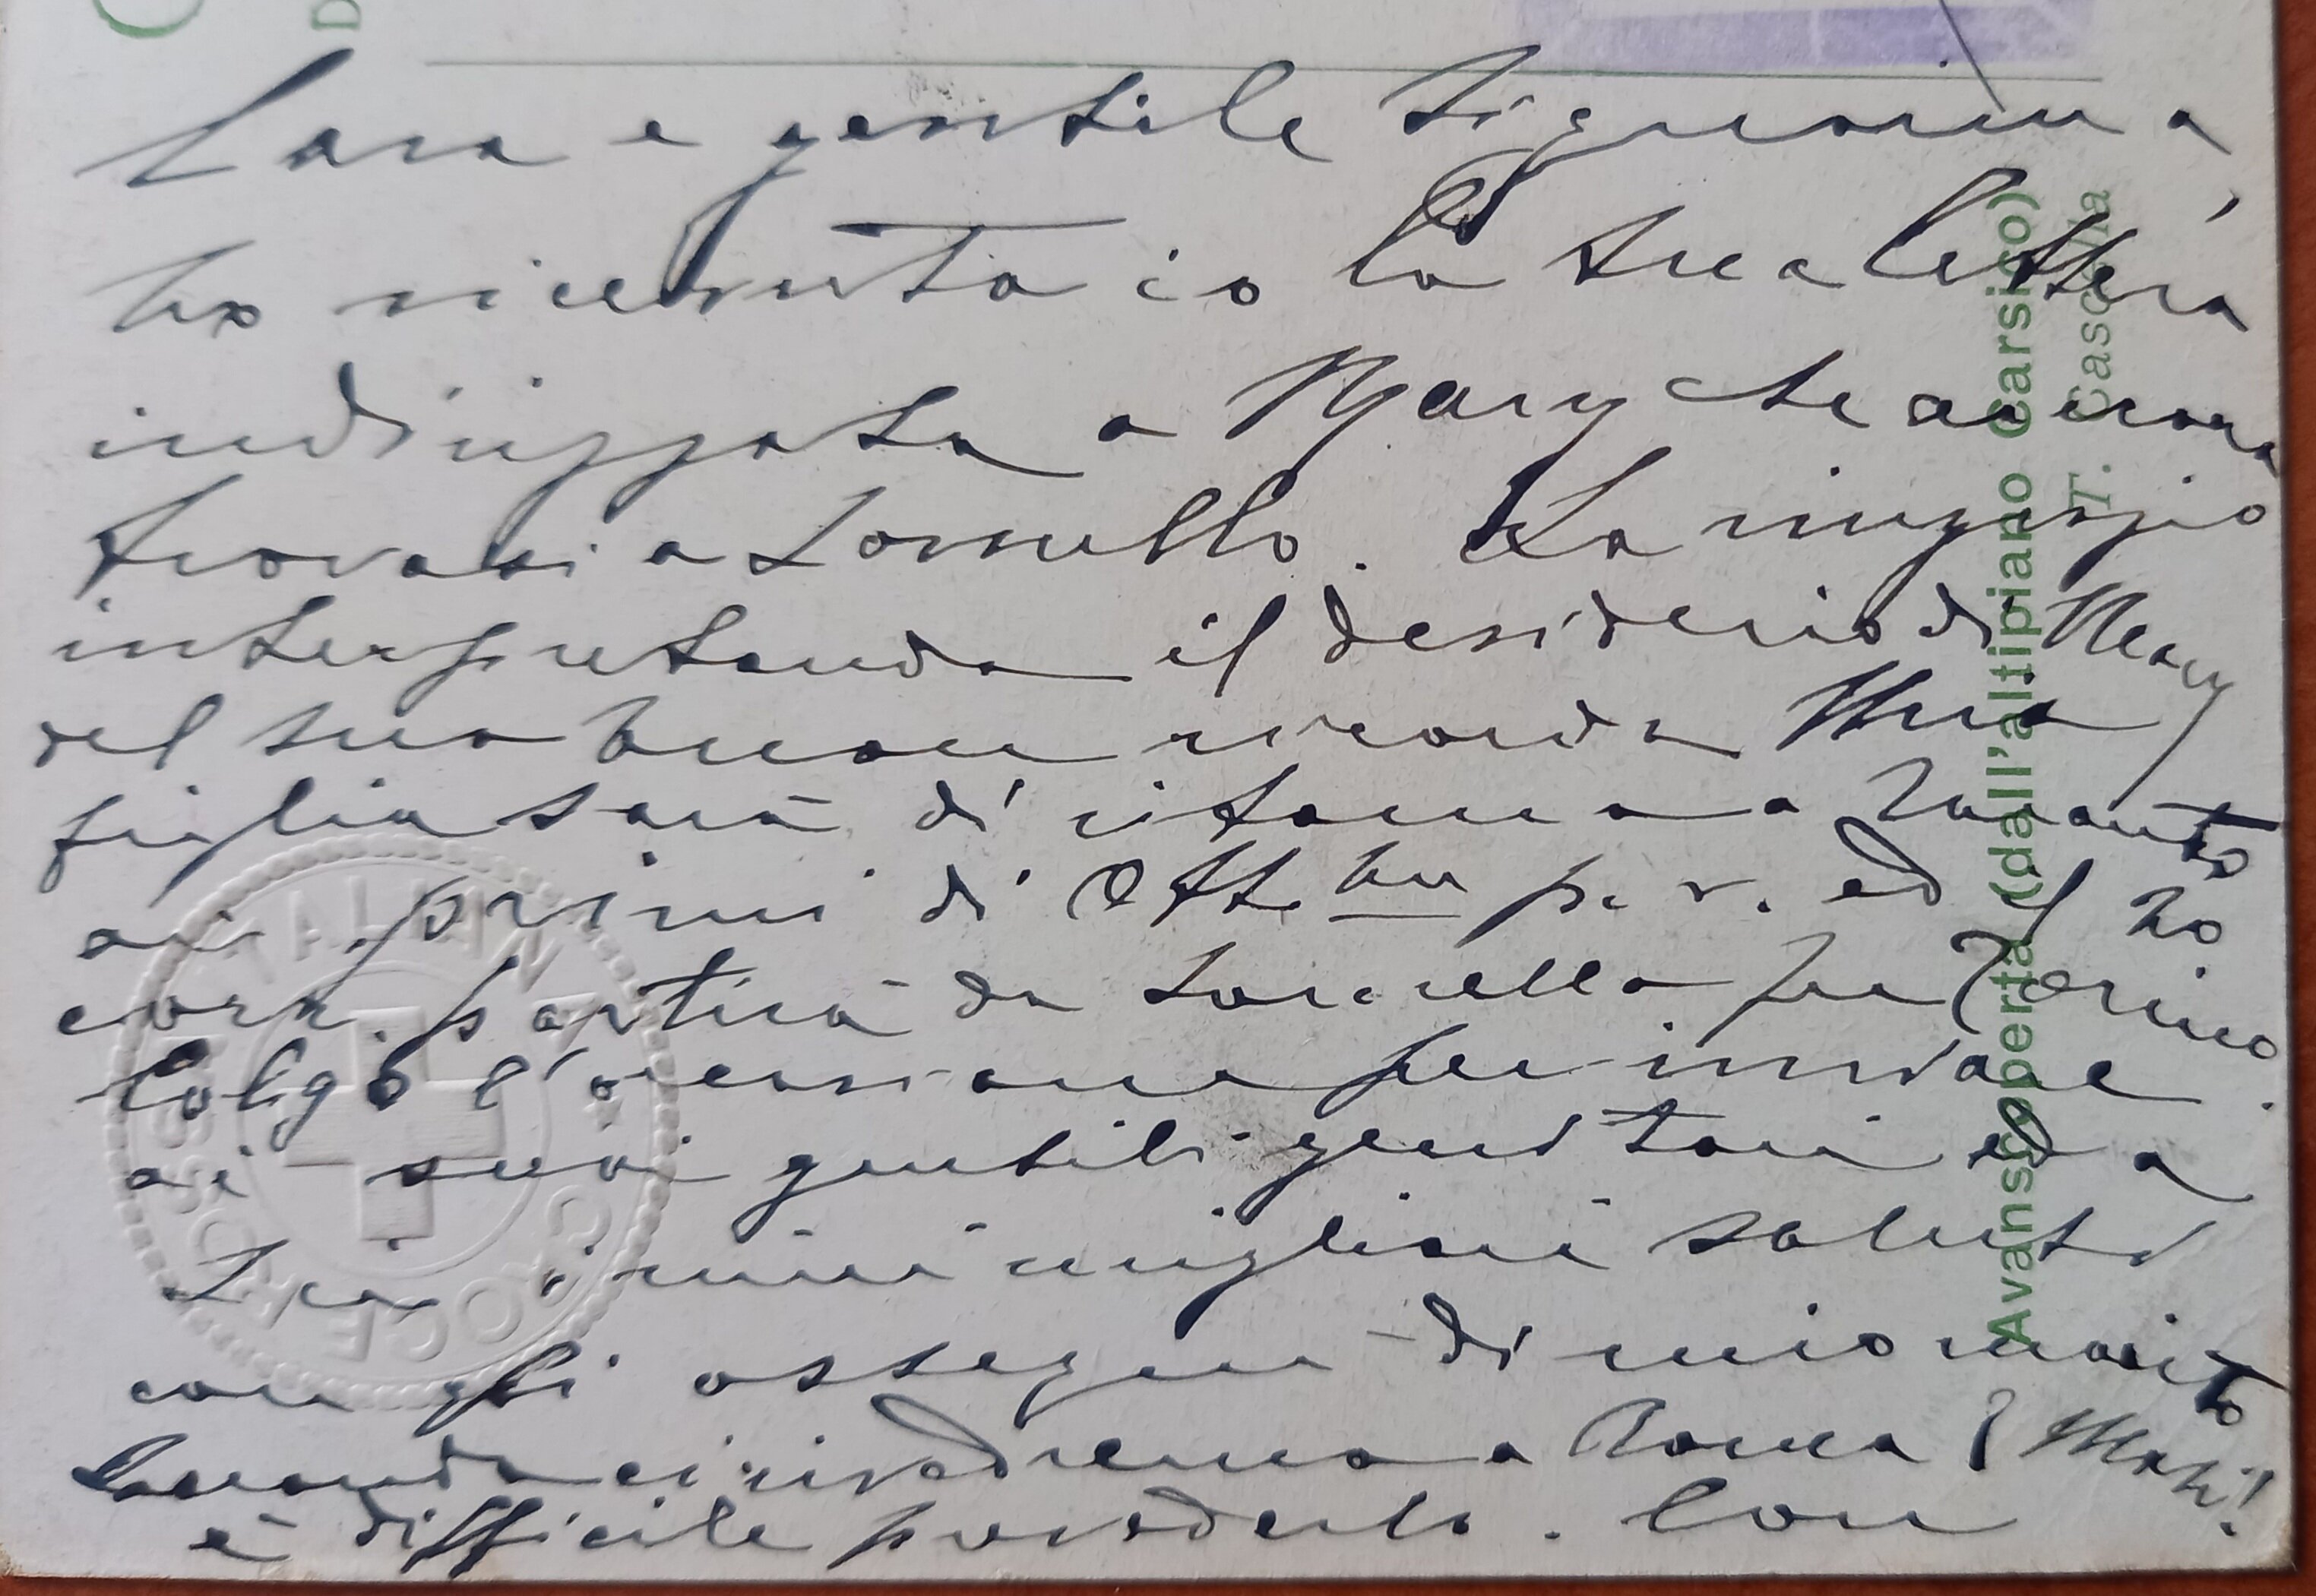 Cara e gentile Signorina,
ho ricevuto io la sua lettera
indirizzata a Mary che ancora
trovasi a . La ringrazio
interpretando il desiderio di Mary
del suo buon ricordo. Mia
figlia sarà di ritorno a Taranto
ai primi di Ott.bre p. v. ed il 20
corr. partirà da per Torino.
Colgo l'occasione per inviare
ai suoi gentili genitori ed a
Lei i miei migliori saluti
con gli ossequi di mio marito
Quando ci rivedremo a Roma? Mah!
è difficile prevederlo. Con
Avanscoperta (dall'altipiano Carsico)
T. Cascella
CROCE ROSSA ITALIANA